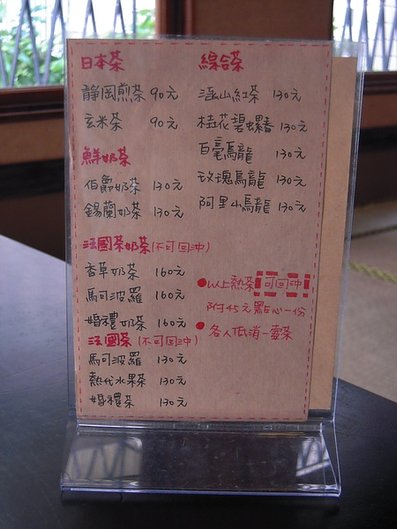 日本茶
靜岡煎茶 90元
玄米茶 90元
鮮奶茶
伯爵奶茶 130元
錫蘭奶茶 130元
法國茶奶茶(不可回沖)
香草奶茶 160元
馬可波羅 160元
婚禮奶茶 160元
法國茶(不可回沖)
馬可波羅 130元
熱代水果茶 130元
婚禮茶 130元
綜合茶
桂花碧螺春 130元
白毫烏龍 130元
玫瑰烏龍 130元
阿里山烏龍 130元
●以上熱茶可回沖
附45元點心一份
●各人低消一壺茶